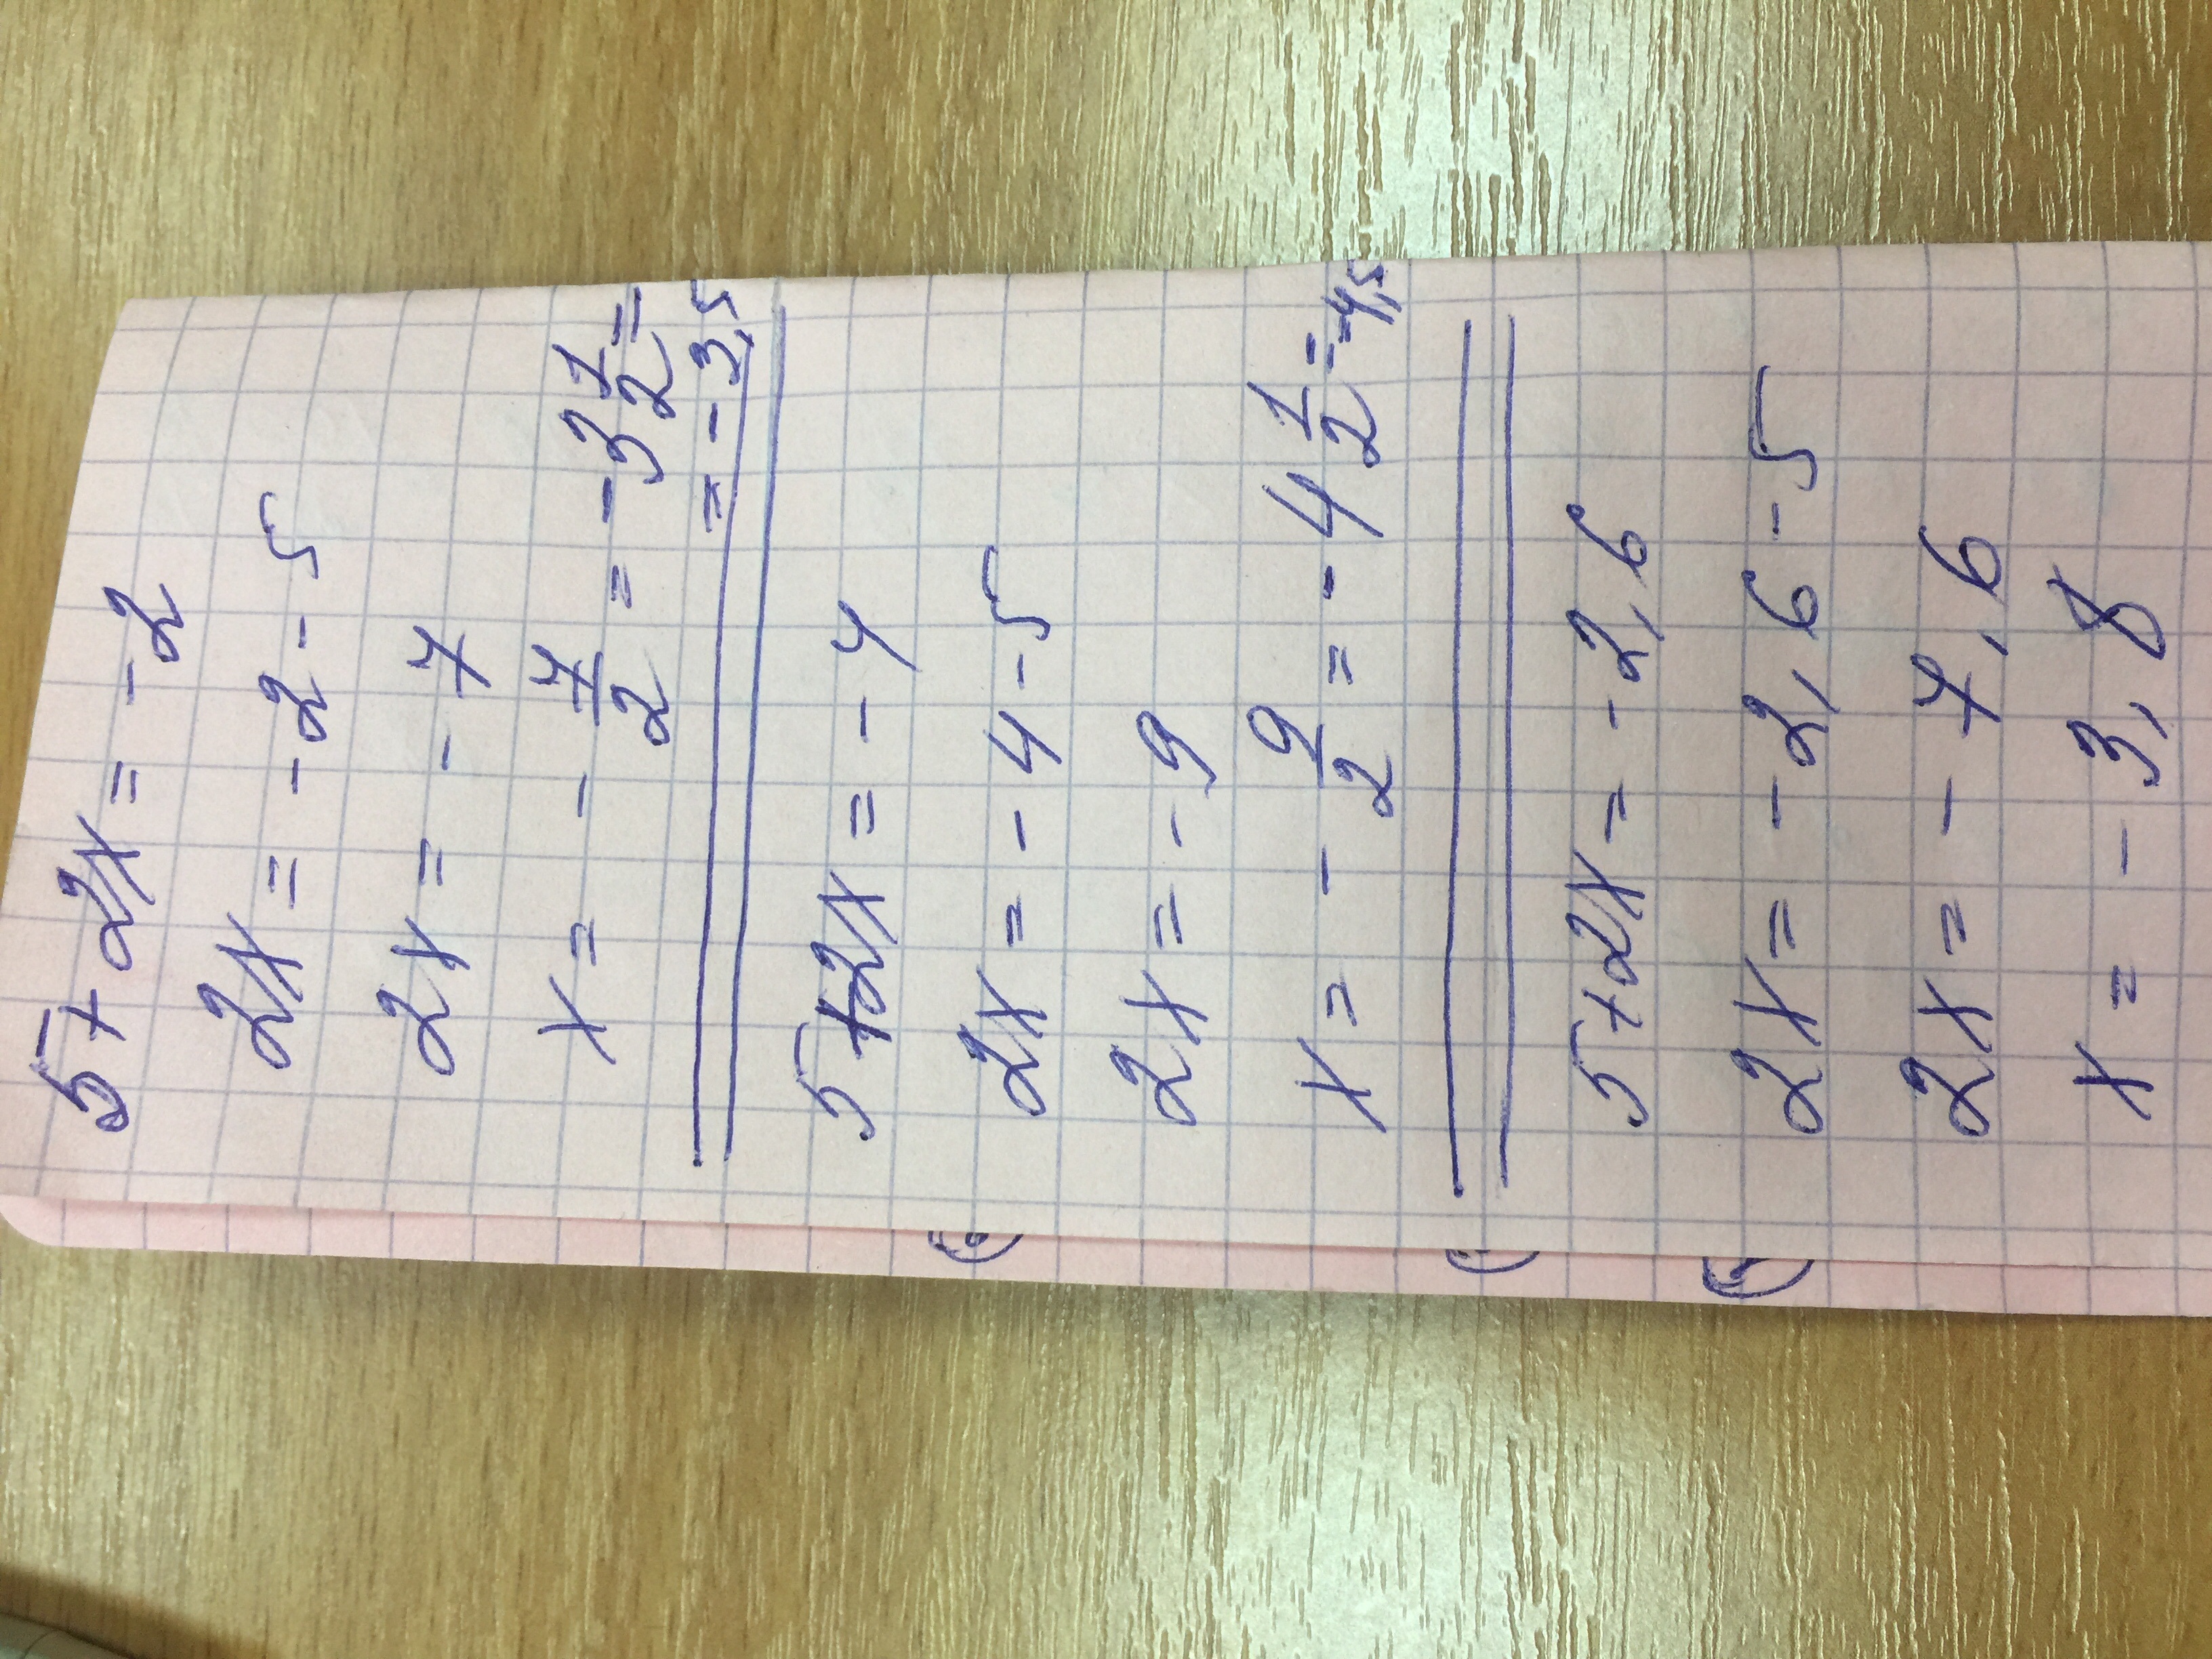 5+2x=-2
2x=-2-5
2x=-7
x=-7/2=-3 1/2=
=-3,5
5+2x=-4
2x=-4-5
2x=-9
x=-9/2=-4 1/2=-4,5
5+2x=-2,6
2x=-2,6-5
2x=-7,6
x=-3,8